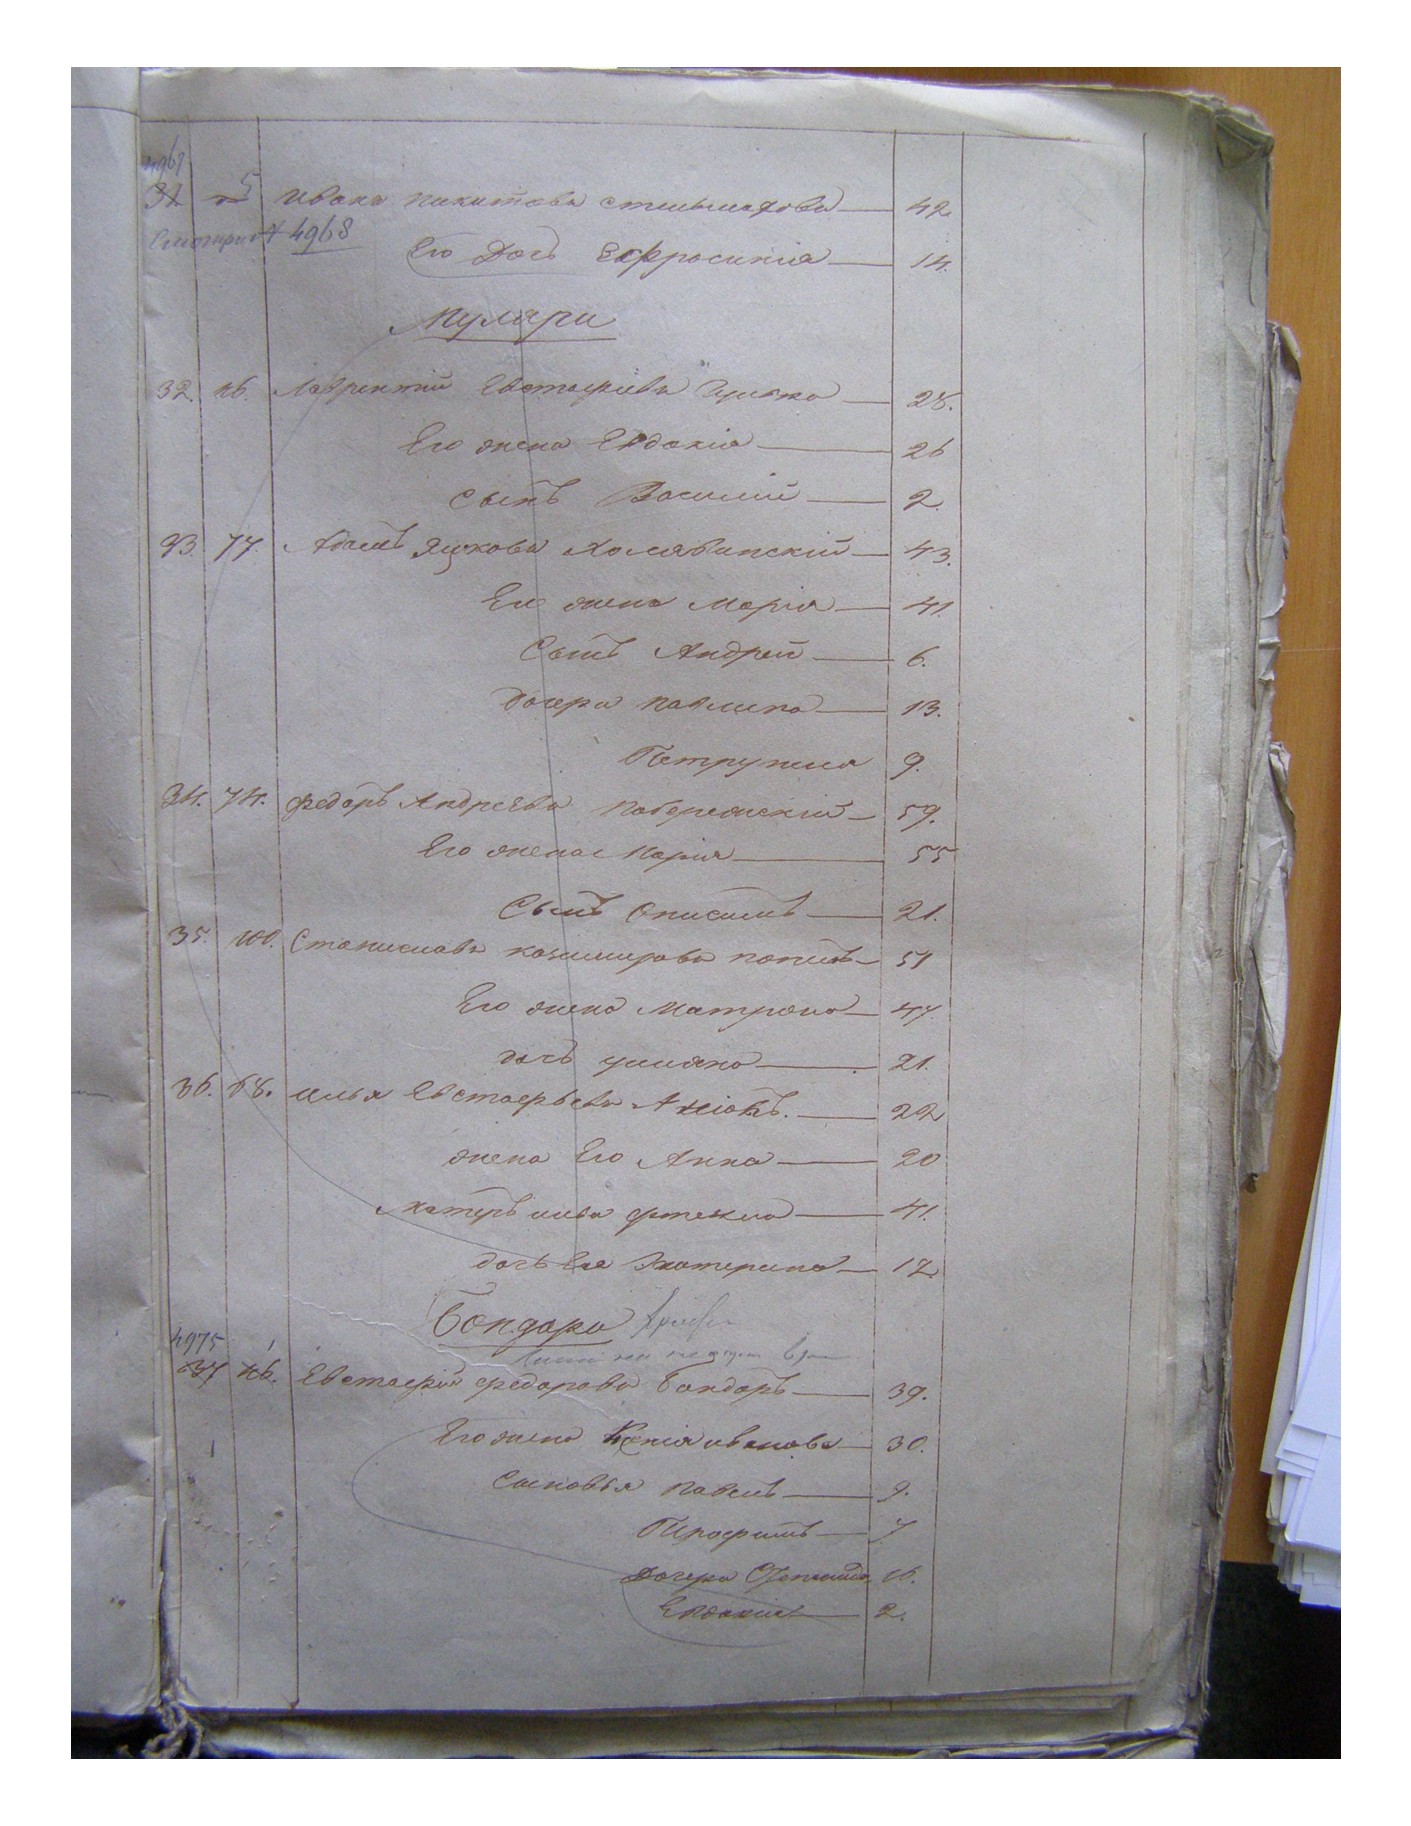 4967
31 5 Ивана Никитова Стельмахова — 42
Смотри 4968
Его Дочь Ефросинія — 14.
Муляри
32. 26. Лаврентий Евстафіевъ — 28.
Его жена Евдокія — 26
Сынъ Василий — 2.
33. 77. Адамъ Яцковъ Холявинский — 43.
Его жена Марія — 41.
Сынъ Андрей — 6.
Дочери Павлина — 13.
Петрунеля 9.
34. 74. Федоръ Андреевъ Побережский — 59.
Его жена Марія — 55
Сынъ Онисимъ — 21.
35. 100. Станиславъ Казимировъ — 51
Его жена Матрона — 47.
дочь Уляна — 21.
36. 68. Илья Евстафьевъ — 22
жена Его Анна — 20
Матерь Ильи — 41.
дочь Ея Екатерина — 12
Бондари
4975 1
37 26. Евстафий Федоровъ Бондарь — 39.
1 Его жена Ксенія Иванова — 30.
Сыновья Павелъ — 9.
Трофимъ — 7
Дочери 16.
Евдокия — 2.